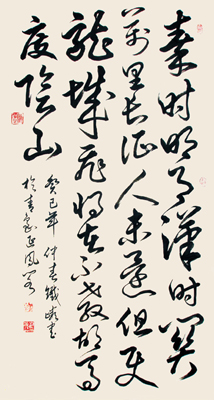 秦时明月汉时关
万里长征人未还但使
龙城飞将在不教胡马
度阴山
癸巳年仲春